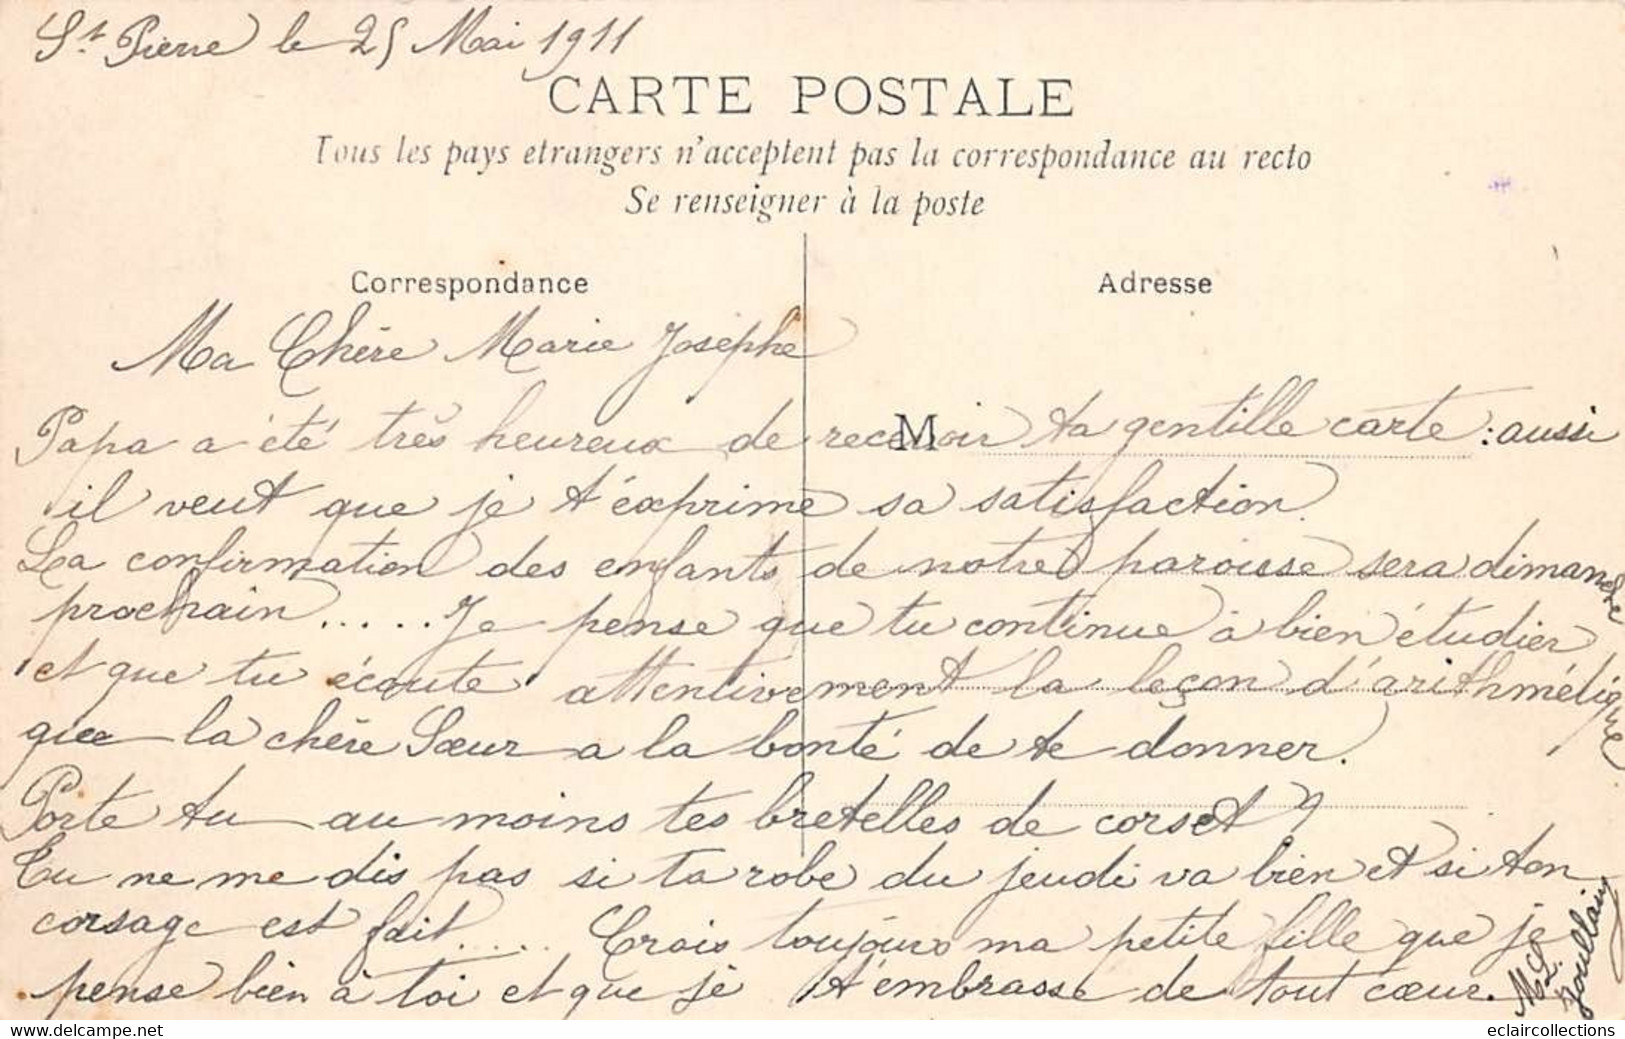 St Pierre le 25 Mai 1911
CARTE POSTALE
Tous les pays etrangers n'acceptent pas la correspondance au recto
Se renseigner à la poste
Correspondance
Adresse
Ma Chère Marie Josèphe
M
Papa a été très heureux de recevoir ta gentille carte : aussi
il veut que je t'exprime sa satisfaction.
La confirmation des enfants de notre paroisse sera dimanche
prochain ..... Je pense que tu continue à bien étudier
et que tu écoute attentivement la leçon d'arithmétique
que la chère Sœur a la bonté de te donner.
Porte tu au moins tes bretelles de corset ?
Tu ne me dis pas si ta robe du jeudi va bien et si ton
corsage est fait..... Crois toujours ma petite fille que je
pense bien à toi et que je t'embrasse de tout cœur.
M L. Joullain
eclaircollections